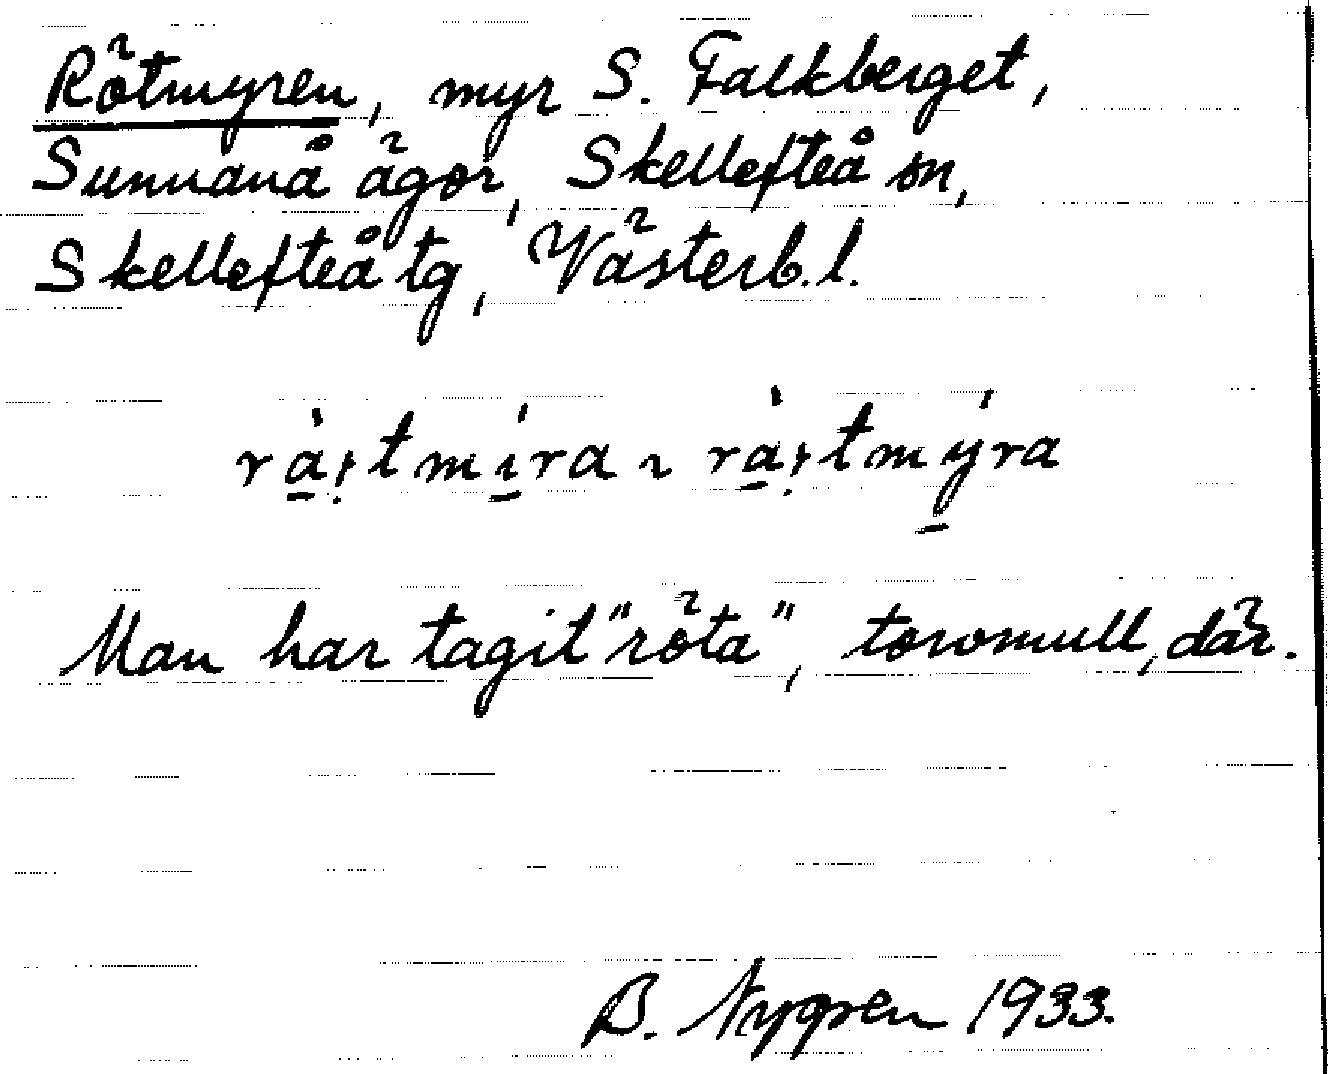 Rötmyren, myr S. Falkberget,
Sunnanå ägor, Skellefteå sn,
Skellefteå tg, Västerb. l.
rà̱i̯tmí̱ra ~ rà̱i̯tmý̱ra
Man har tagit "röta", torvmull, där.
B. Nygren 1933.